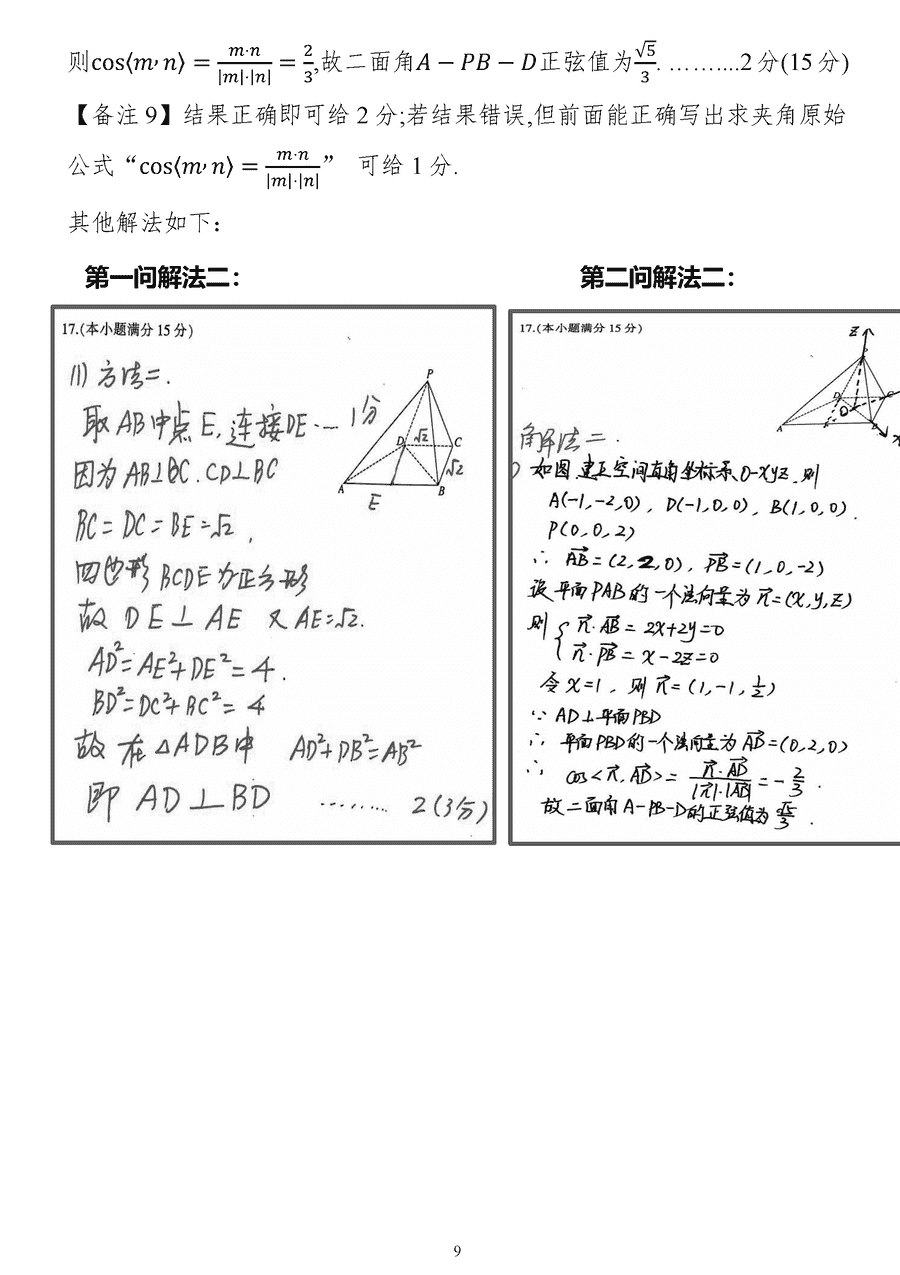 则cos⟨m, n⟩ = m·n/|m|·|n| = 2/3,故二面角A − PB − D正弦值为√5/3. ………...2分(15分)
【备注9】结果正确即可给2分;若结果错误,但前面能正确写出求夹角原始
公式“cos⟨m, n⟩ = m·n/|m|·|n|” 可给1分.
其他解法如下:
第一问解法二:
17.(本小题满分15分)
(1) 方法二.
取AB中点E,连接DE…1分
因为AB⊥BC.CD⊥BC
BC=DC=BE=√2,
四边形BCDE为正方形
故 DE⊥AE 又AE=√2.
AD²=AE²+DE²=4.
BD²=DC²+BC²=4
故在△ADB中 AD²+DB²=AB²
即 AD⊥BD ……… 2(3分)
P
D √2 C
√2
A B
E
第二问解法二:
17.(本小题满分15分)
Z
A
解法二.
如图,建立空间直角坐标系O-xyz,则
A(-1,-2,0), D(-1,0,0), B(1,0,0).
P(0,0,2)
∴ AB=(2,2,0), PB=(1,0,-2)
设平面PAB的一个法向量为n=(x,y,z)
则 { n·AB=2x+2y=0
n·PB=x-2z=0
令x=1, 则n=(1,-1,1/2)
∵ AD⊥平面PBD
∴ 平面PBD的一个法向量为AD=(0,2,0)
∴ cos<n,AD>= n·AD/|n|·|AD| =-2/3.
故二面角A-PB-D的正弦值为√5/3.
9